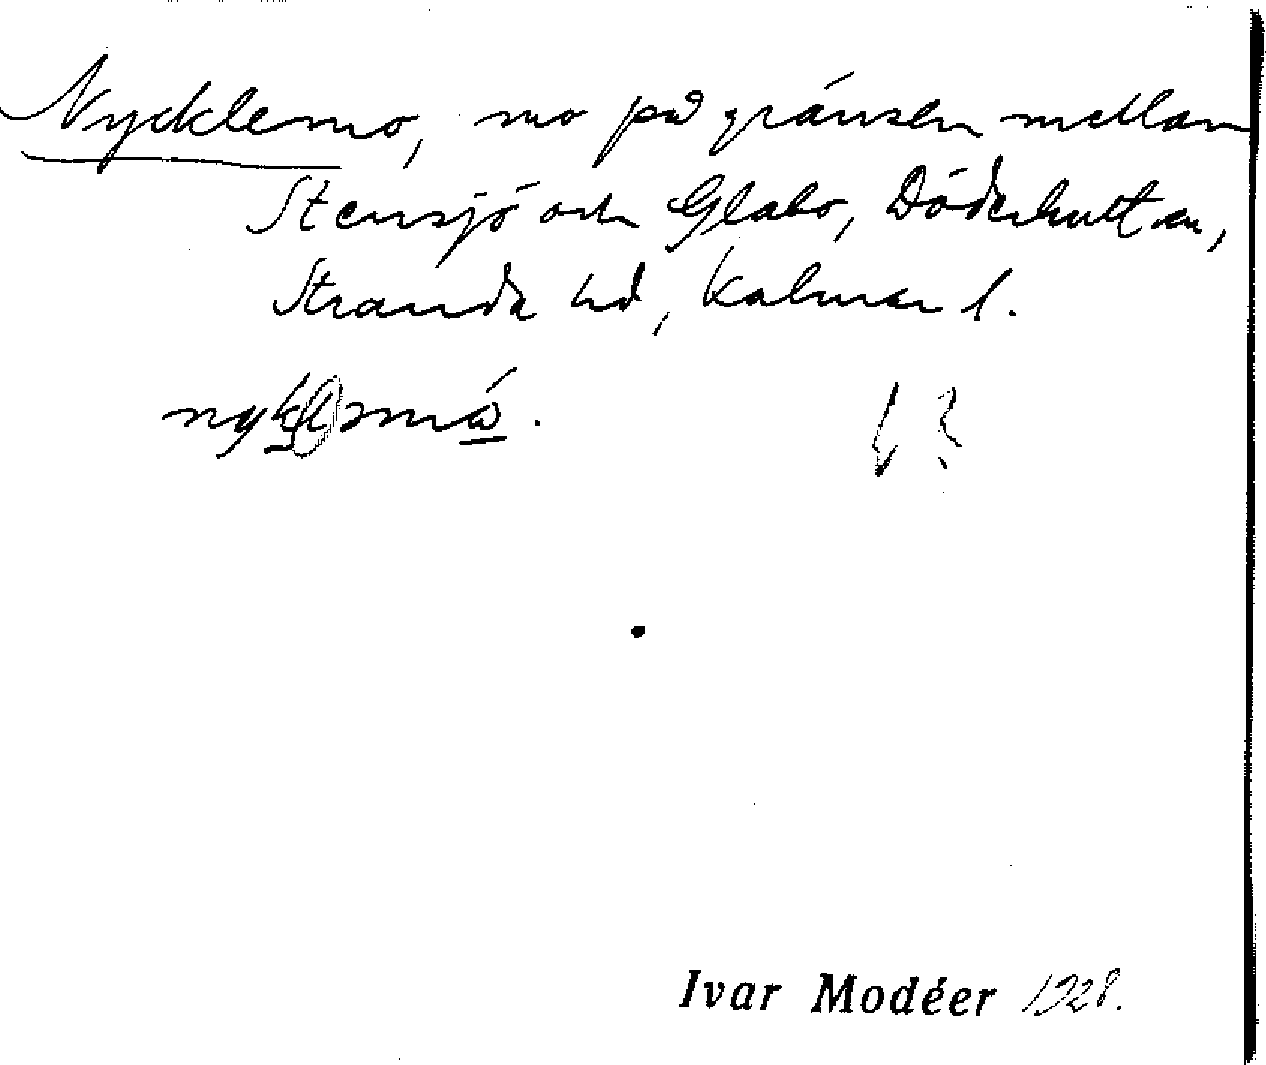 Nycklemo, mo på gränsen mellan
Stensjö och Glabo, Döderhultsn,
Stranda hd, Kalmar l.
Ivar Modéer 1928.